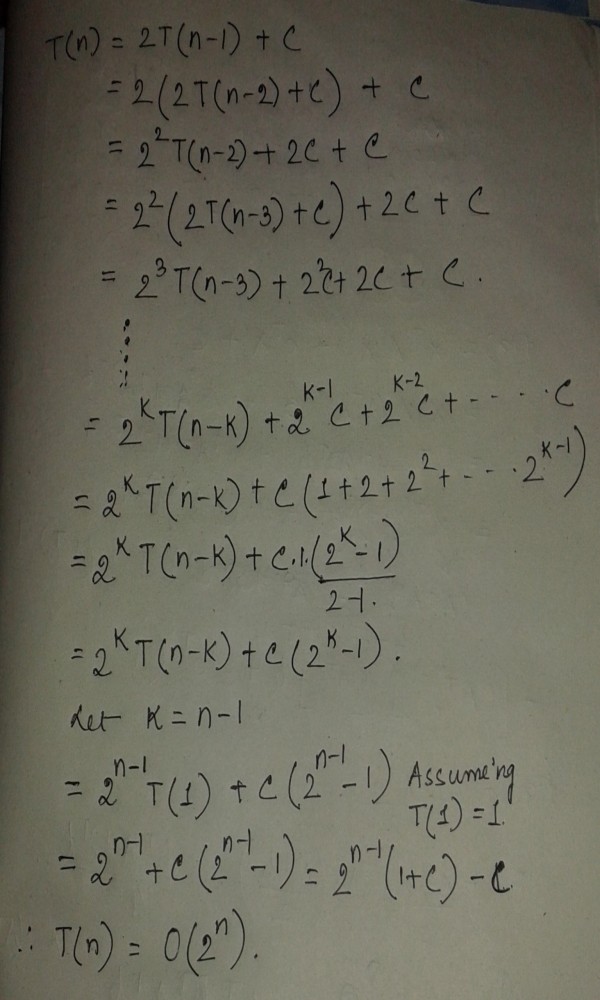 T(n) = 2T(n-1) + C
= 2(2T(n-2)+C) + C
= 2²T(n-2)+2C + C
= 2²(2T(n-3)+C)+2C + C
= 2³T(n-3) + 2²C+ 2C + C.
= 2ᴷT(n-K) + 2ᴷ⁻¹C + 2ᴷ⁻²C + - - - · C
= 2ᴷT(n-K) + C(1+2+2²+ - - - · 2ᴷ⁻¹)
= 2ᴷT(n-K) + C.1.(2ᴷ-1)
2-1.
= 2ᴷT(n-K) + C(2ᴷ-1).
Let K = n-1
= 2ⁿ⁻¹T(1) + C(2ⁿ⁻¹-1) Assume'ng
T(1)=1.
= 2ⁿ⁻¹+C(2ⁿ⁻¹-1) = 2ⁿ⁻¹(1+C) - C
∴ T(n) = O(2ⁿ).